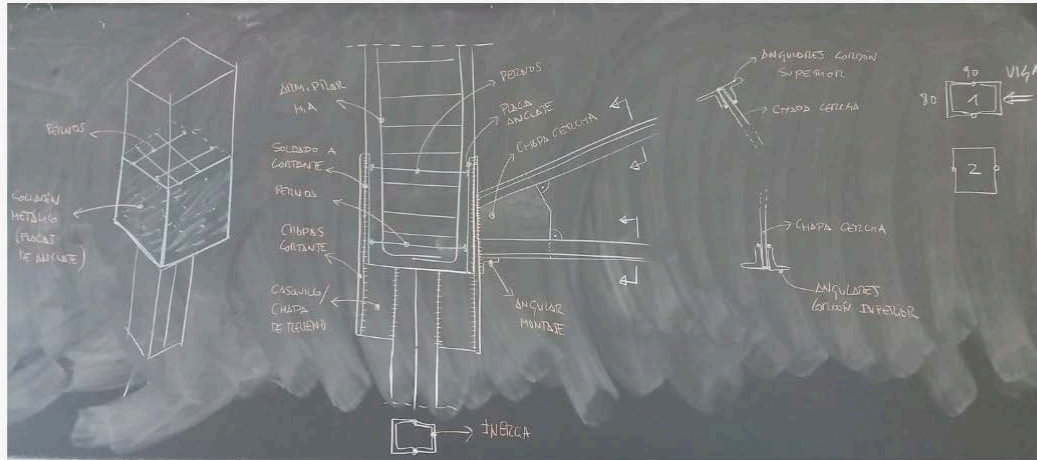 PERNOS
COLLARÍN
METÁLICO
(PLACAS
DE ANCLAJE)
ARM. PILAR
H.A
SOLDADO A
CORTANTE
PERNOS
CHAPAS
CORTANTE
CASQUILLO/
CHAPA
DE RELLENO
PERNOS
PLACA
ANCLAJE
CHAPA CERCHA
ANGULAR
MONTAJE
INERCIA
ANGULARES CORDÓN
SUPERIOR
CHAPA CERCHA
CHAPA CERCHA
ANGULARES
CORDÓN INFERIOR
90
VIGA
80
1
2